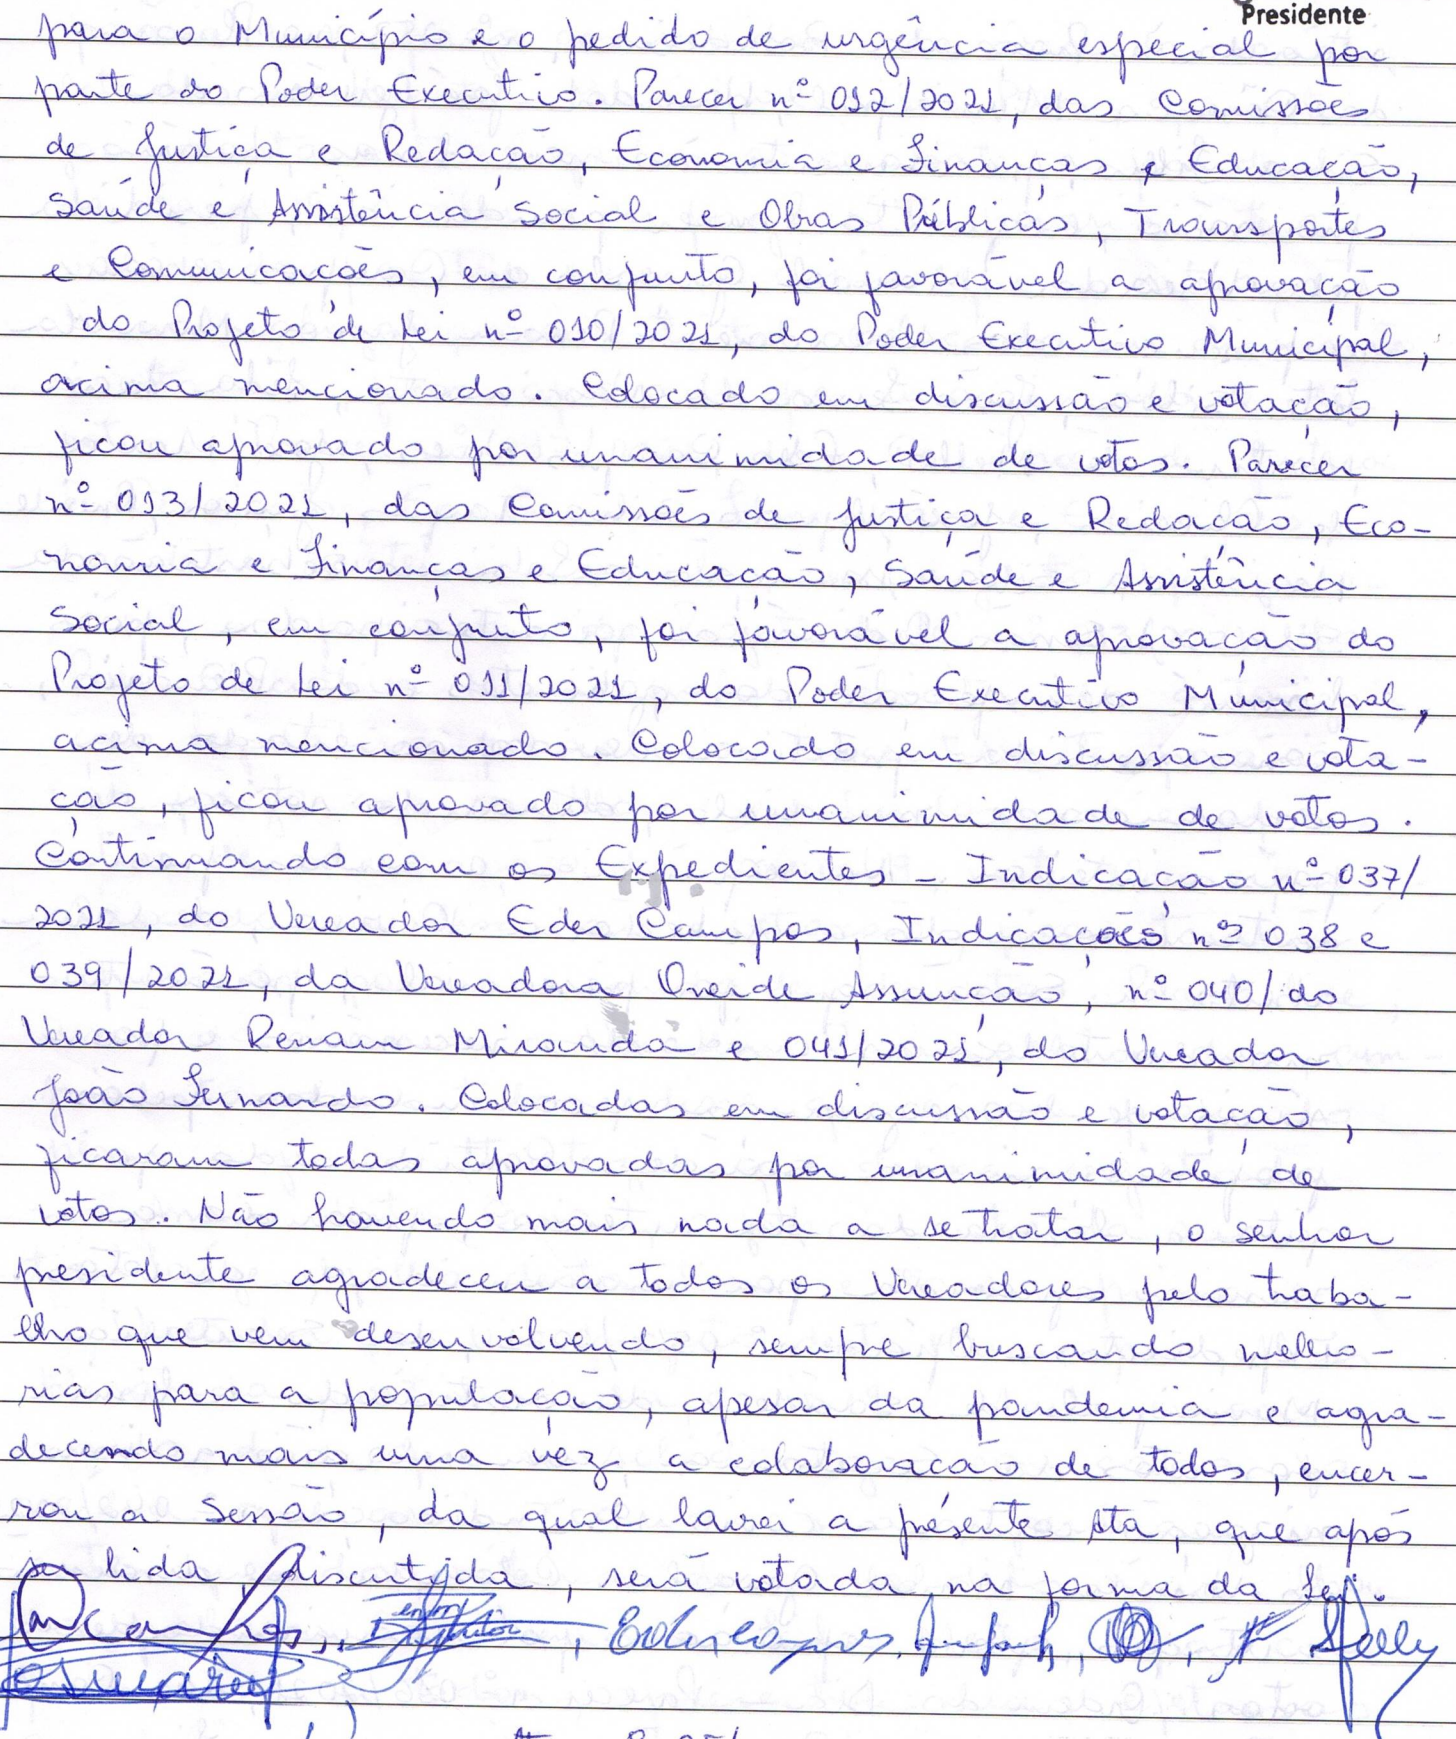 Presidente
para o Município e o pedido de urgência especial por
parte do Poder Executivo. Parecer nº 012/2021, das Comissões
de Justiça e Redação, Economia e Finanças e Educação,
Saúde e Assistência Social e Obras Públicas, Transportes
e Comunicações, em conjunto, foi favorável a aprovação
do Projeto de Lei nº 010/2021, do Poder Executivo Municipal,
acima mencionado. Colocado em discussão e votação,
ficou aprovado por unanimidade de votos. Parecer
nº 013/2021, das Comissões de Justiça e Redação, Eco-
nomia e Finanças e Educação, Saúde e Assistência
Social, em conjunto, foi favorável a aprovação do
Projeto de Lei nº 011/2021, do Poder Executivo Municipal,
acima mencionado. Colocado em discussão e vota-
ção, ficou aprovado por unanimidade de votos.
Continuando com os Expedientes - Indicação nº 037/
2021, do Vereador Eder Campos, Indicações nºs 038 e
039/2021, da Vereadora Oneide Assunção, nº 040/ do
Vereador Renam Miranda e 041/2021, do Vereador
João Fernando. Colocadas em discussão e votação,
ficaram todas aprovadas por unanimidade de
votos. Não havendo mais nada a se tratar, o senhor
presidente agradeceu a todos os Vereadores pelo traba-
lho que vem desenvolvendo, sempre buscando melho-
rias para a população, apesar da pandemia e agra-
decendo mais uma vez a colaboração de todos, encer-
rou a Sessão, da qual lavrei a presente Ata, que após
ser lida, discutida, será votada na forma da Lei.